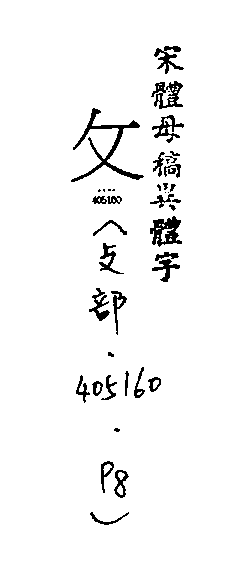 宋體母稿異體字
攵
405160
(攴部.405160.P8)